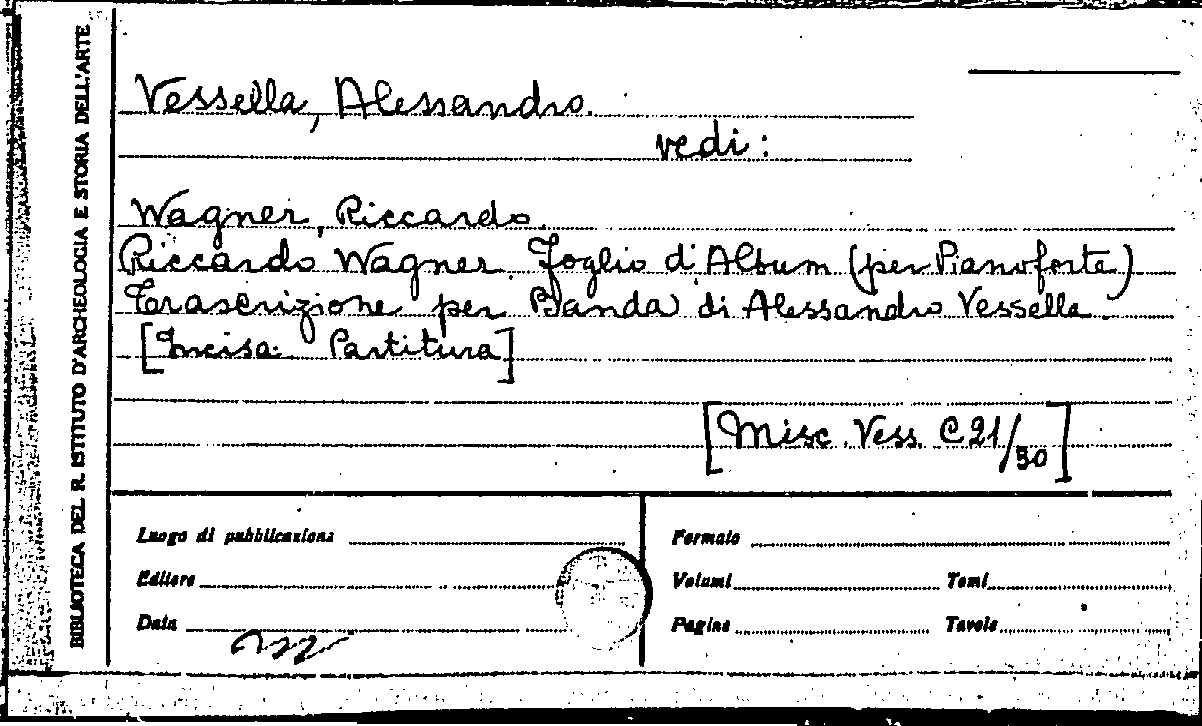 BIBLIOTECA DEL R. ISTITUTO D'ARCHEOLOGIA E STORIA DELL'ARTE
Vessella, Alessandro.
vedi:
Wagner, Riccardo.
Riccardo Wagner. Foglio d'Album (per Pianoforte)
Trascrizione per Banda di Alessandro Vessella.
[Incisa. Partitura]
[Misc. Vess. C 21/50]
Luogo di pubblicazione
Editore
Data
Formato
Volumi Tomi
Pagine Tavole